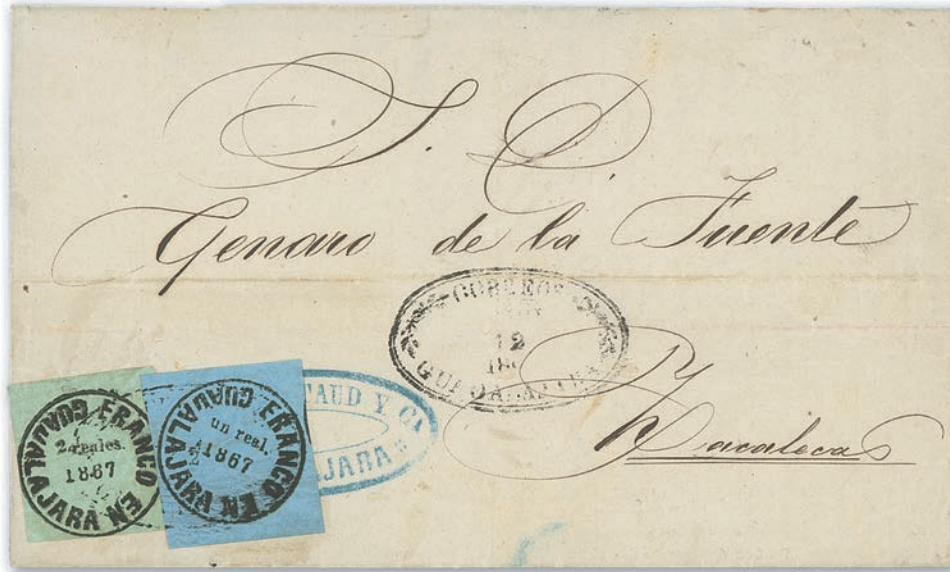 S. D.
Genaro de la Fuente
CORREOS
12
186
GUADALAJARA
Zacatecas
FRANCO EN GUADALAJARA
2 reales.
1867
FRANCO EN GUADALAJARA
un real.
1867
TAUD Y CA
JARA